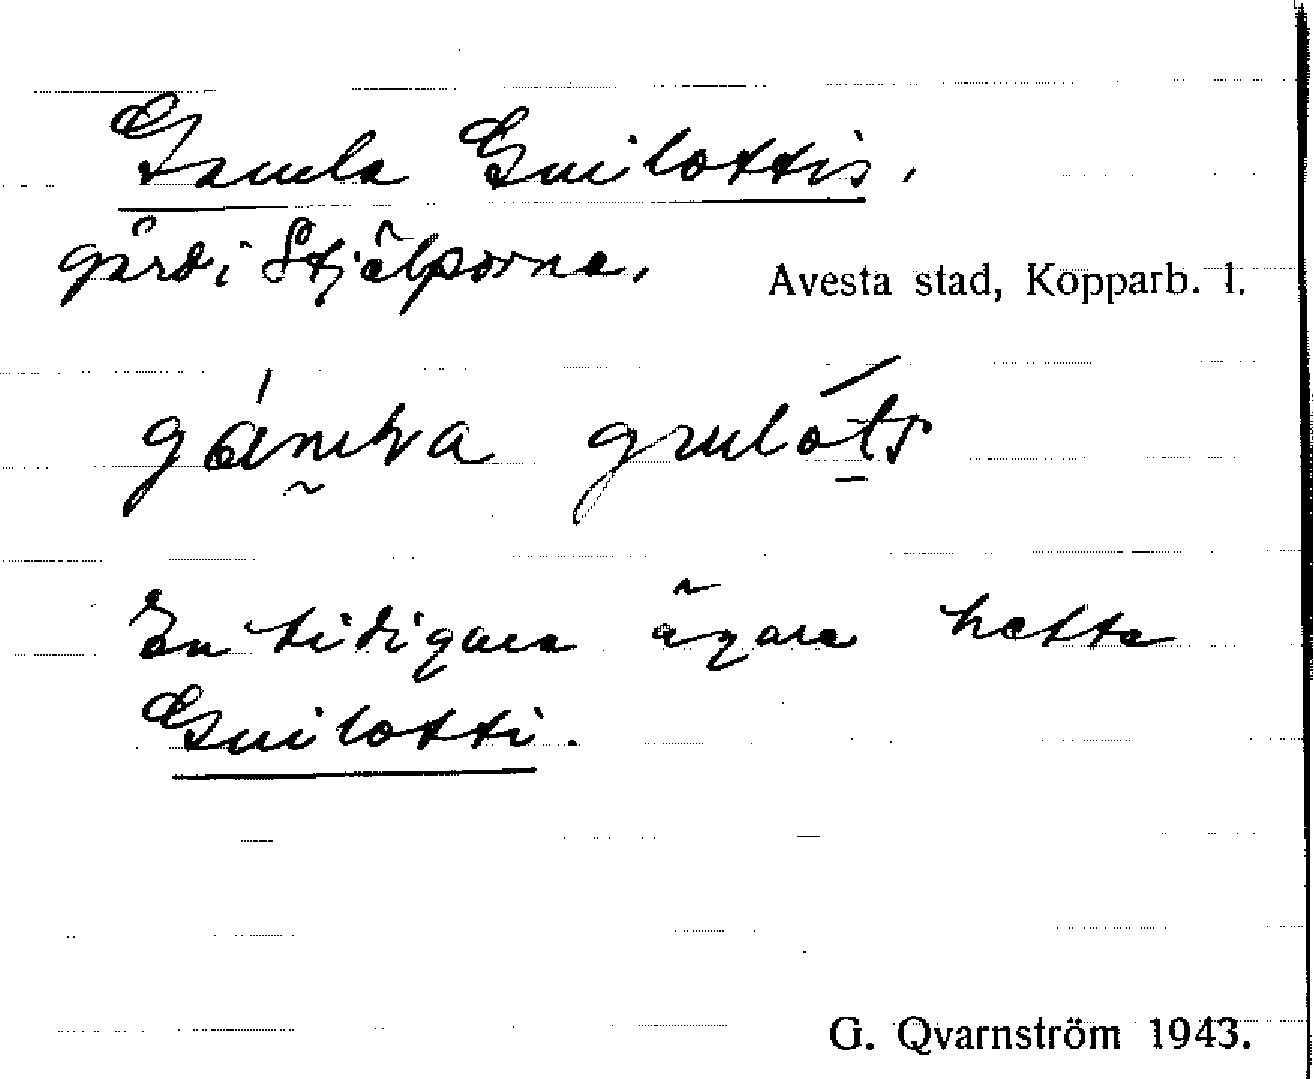 Gamla Guilottis.
gård i Stjälporna.
Avesta stad, Kopparb. l.
En tidigare ägare hette
Guilotti.
G. Qvarnström 1943.